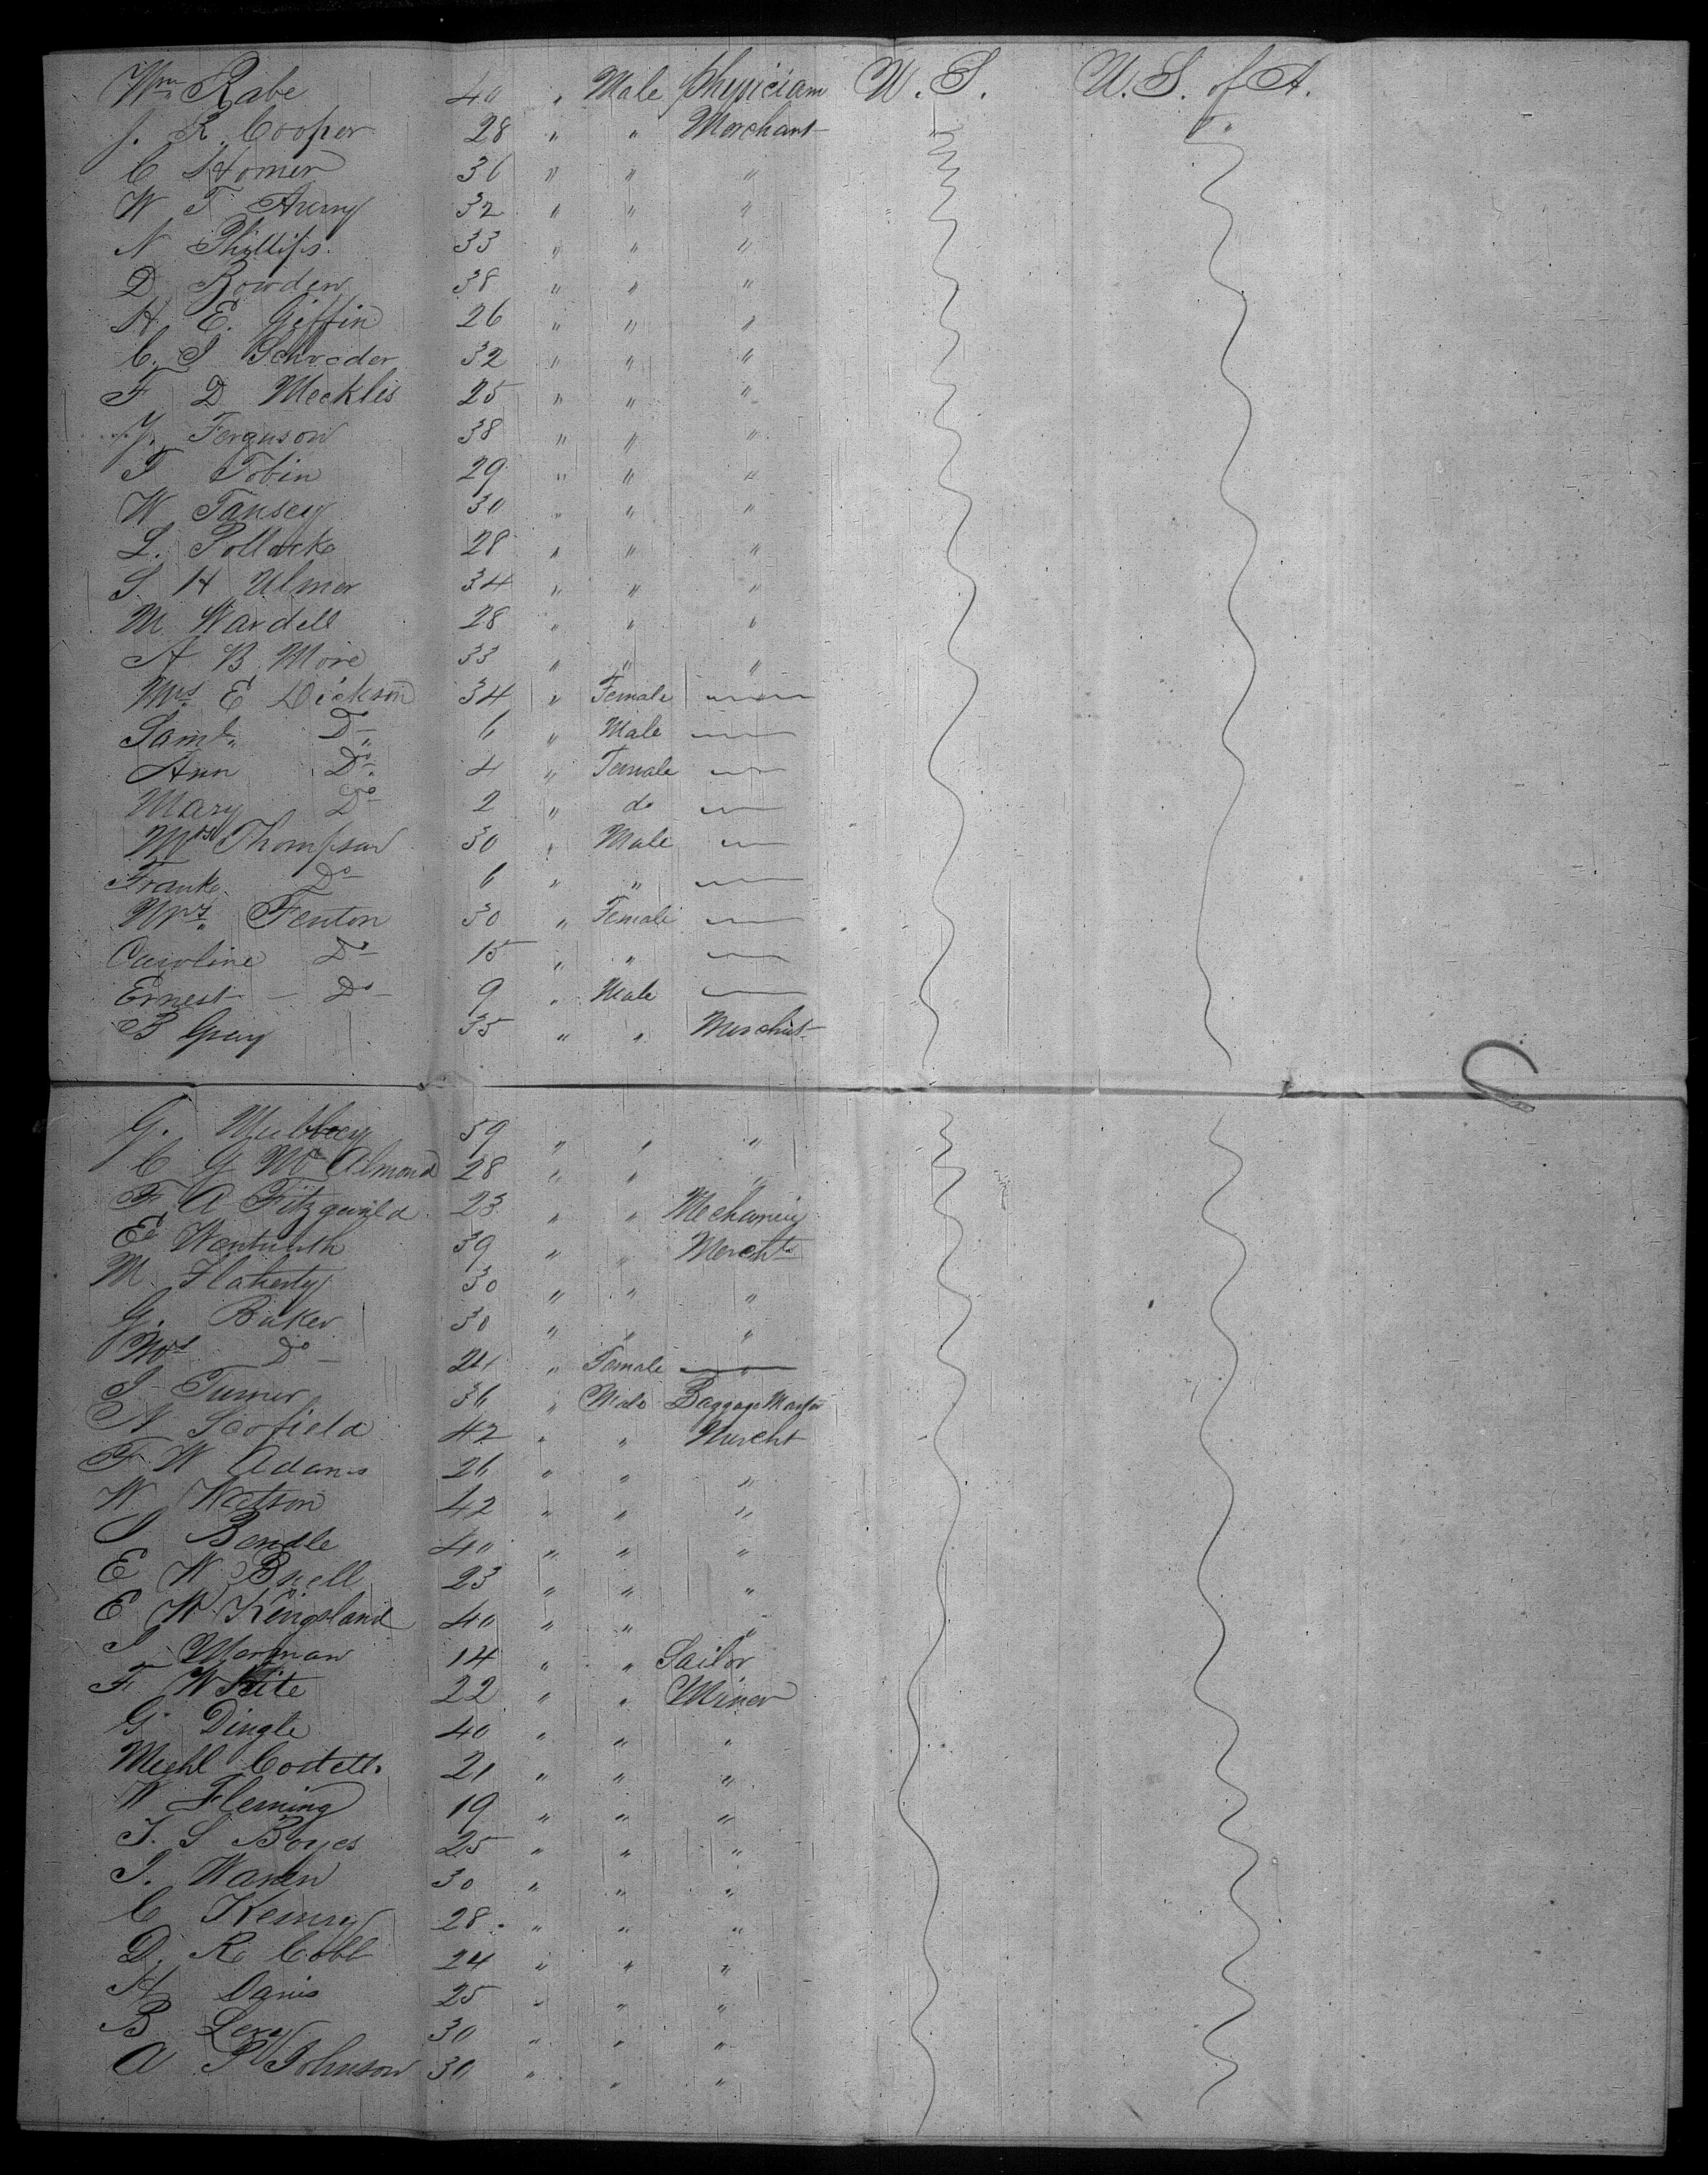 Wm Rabe 40 " Male physician U. S. U. S. of A.
J. R. Cooper 28 " " Merchant " "
C Homer 36 " " "
W T Avery 32 " " "
N Phillips 33 " " "
D Bowden 38 " " "
H E. Giffin 26 " " "
C. S Schroder 32 " " "
F D Meckles 25 " " "
J. Ferguson 38 " " "
T Tobin 29 " " "
W Tansey 30 " " "
L. Pollock 28 " " "
S H Ulmer 34 " " "
M Wardell 28 " " "
A B More 33 " " "
Mrs E Dickson 34 " Female
Saml. Do 6 " Male
Ann Do 4 " Female
Mary Do 2 " do
Mrs Thompson 30 " Male
Frank Do 6 " "
Mrs. Fenton 30 " Female
Caroline Do 15 " "
Ernest Do 9 " Male
B Gray 35 " " Mercht
G. 59 " " "
C G Mc Almond 28 " " "
F A Fitzgerald 23 " " Mechanic
Ed Wentworth 39 " " Mercht
M. Flaherty 30 " " "
G. Baker 30 " " "
Mrs Do 24 " Female
J Turner 36 " Male Baggage Master
N Scofield 42 " " Mercht
F. W Adams 26 " " "
W. Watson 42 " " "
J Bendle 40 " " "
E W Buell 23 " " "
E W Kingsland 40 " " "
J Morman 14 " " Sailor
F White 22 " " Miner
G. Dingle 40 " " "
Michl Costello 21 " " "
W Fleming 19 " " "
J. S Boyes 25 " " "
J. Warren 30 " " "
C Kenny 28 " " "
D. R. Cobb 24 " " "
H Davis 25 " " "
B Levy 30 " " "
A P Johnson 30 " " "